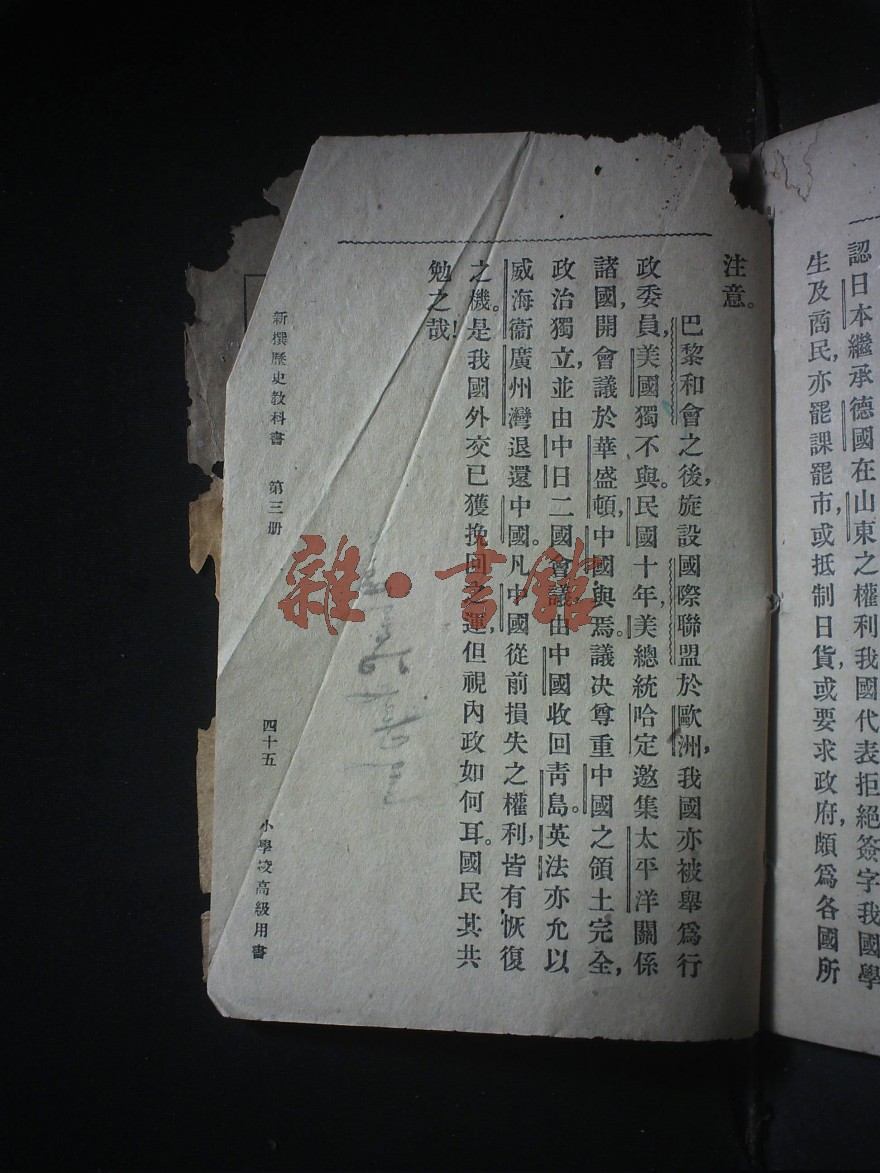 認日本繼承德國在山東之權利我國代表拒絕簽字我國學
生及商民,亦罷課罷市,或抵制日貨,或要求政府,頗爲各國所
注意。
巴黎和會之後,旋設國際聯盟於歐洲,我國亦被舉爲行
政委員,美國獨不與。民國十年,美總統哈定邀集太平洋關係
諸國,開會議於華盛頓,中國與焉。議決尊重中國之領土完全,
政治獨立,並由中日二國會議,由中國收回靑島。英法亦允以
威海衞廣州灣退還中國。凡中國從前損失之權利,皆有恢復
之機。是我國外交已獲挽回之運,但視內政如何耳。國民其共
勉之哉!
新撰歷史敎科書 第三册 四十五 小學校高級用書
雜·書館